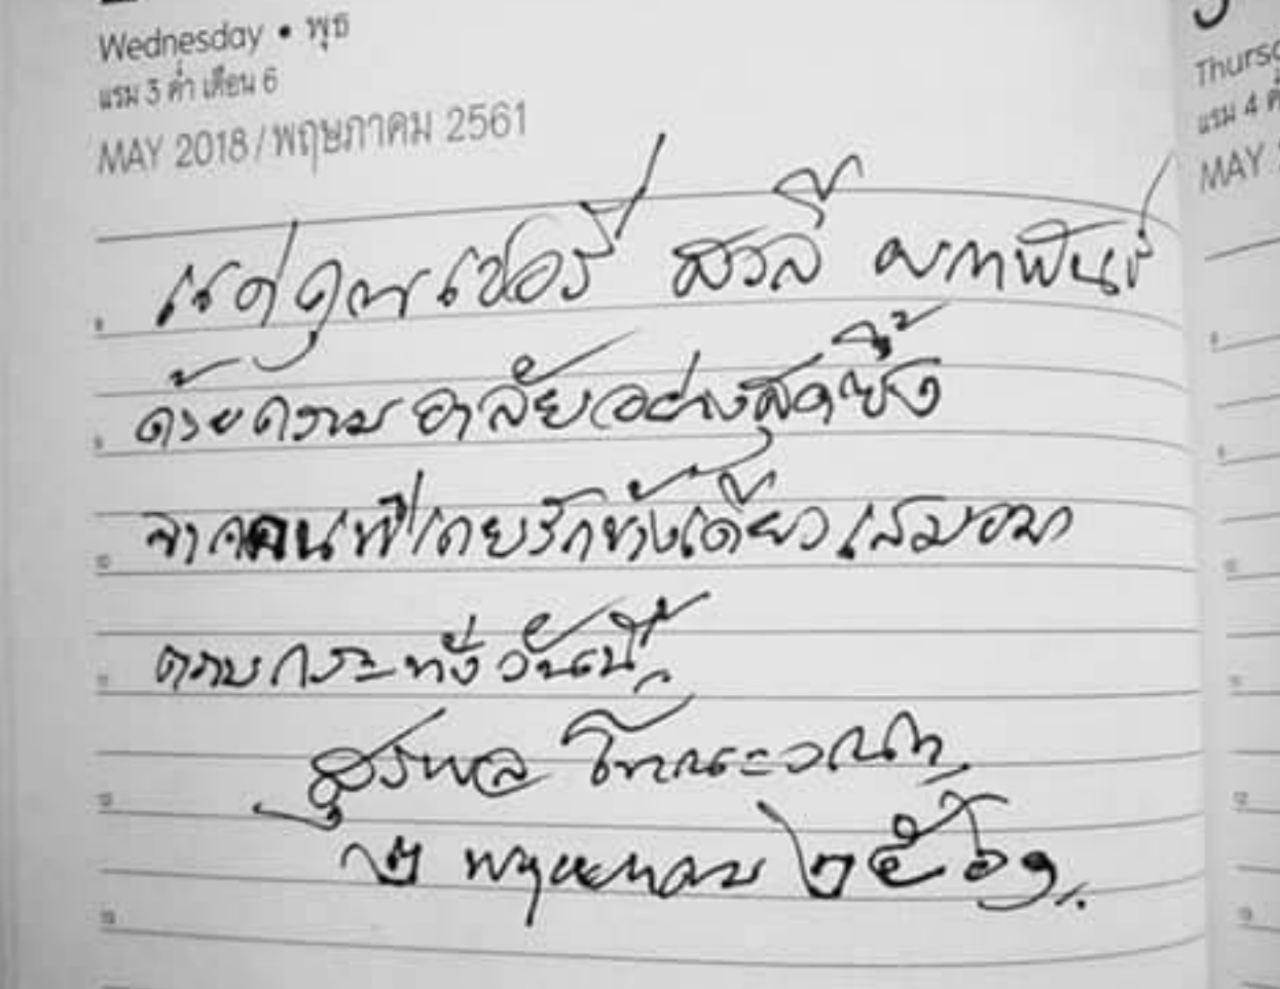 Wednesday • พุธ
แรม 3 ค่ำ เดือน 6
MAY 2018 / พฤษภาคม 2561
แด่คุณเชอรี่ สวลี ผกาพันธ์
ด้วยความอาลัยอย่างสุดซึ้ง
จากคนที่เคยรักข้างเดียวเสมอมา
ตราบกระทั่งวันนี้
สุรพล โทณะวณิก
๒ พฤษภาคม ๒๕๖๑
8
9
10
11
12
13
แรม 4
MAY